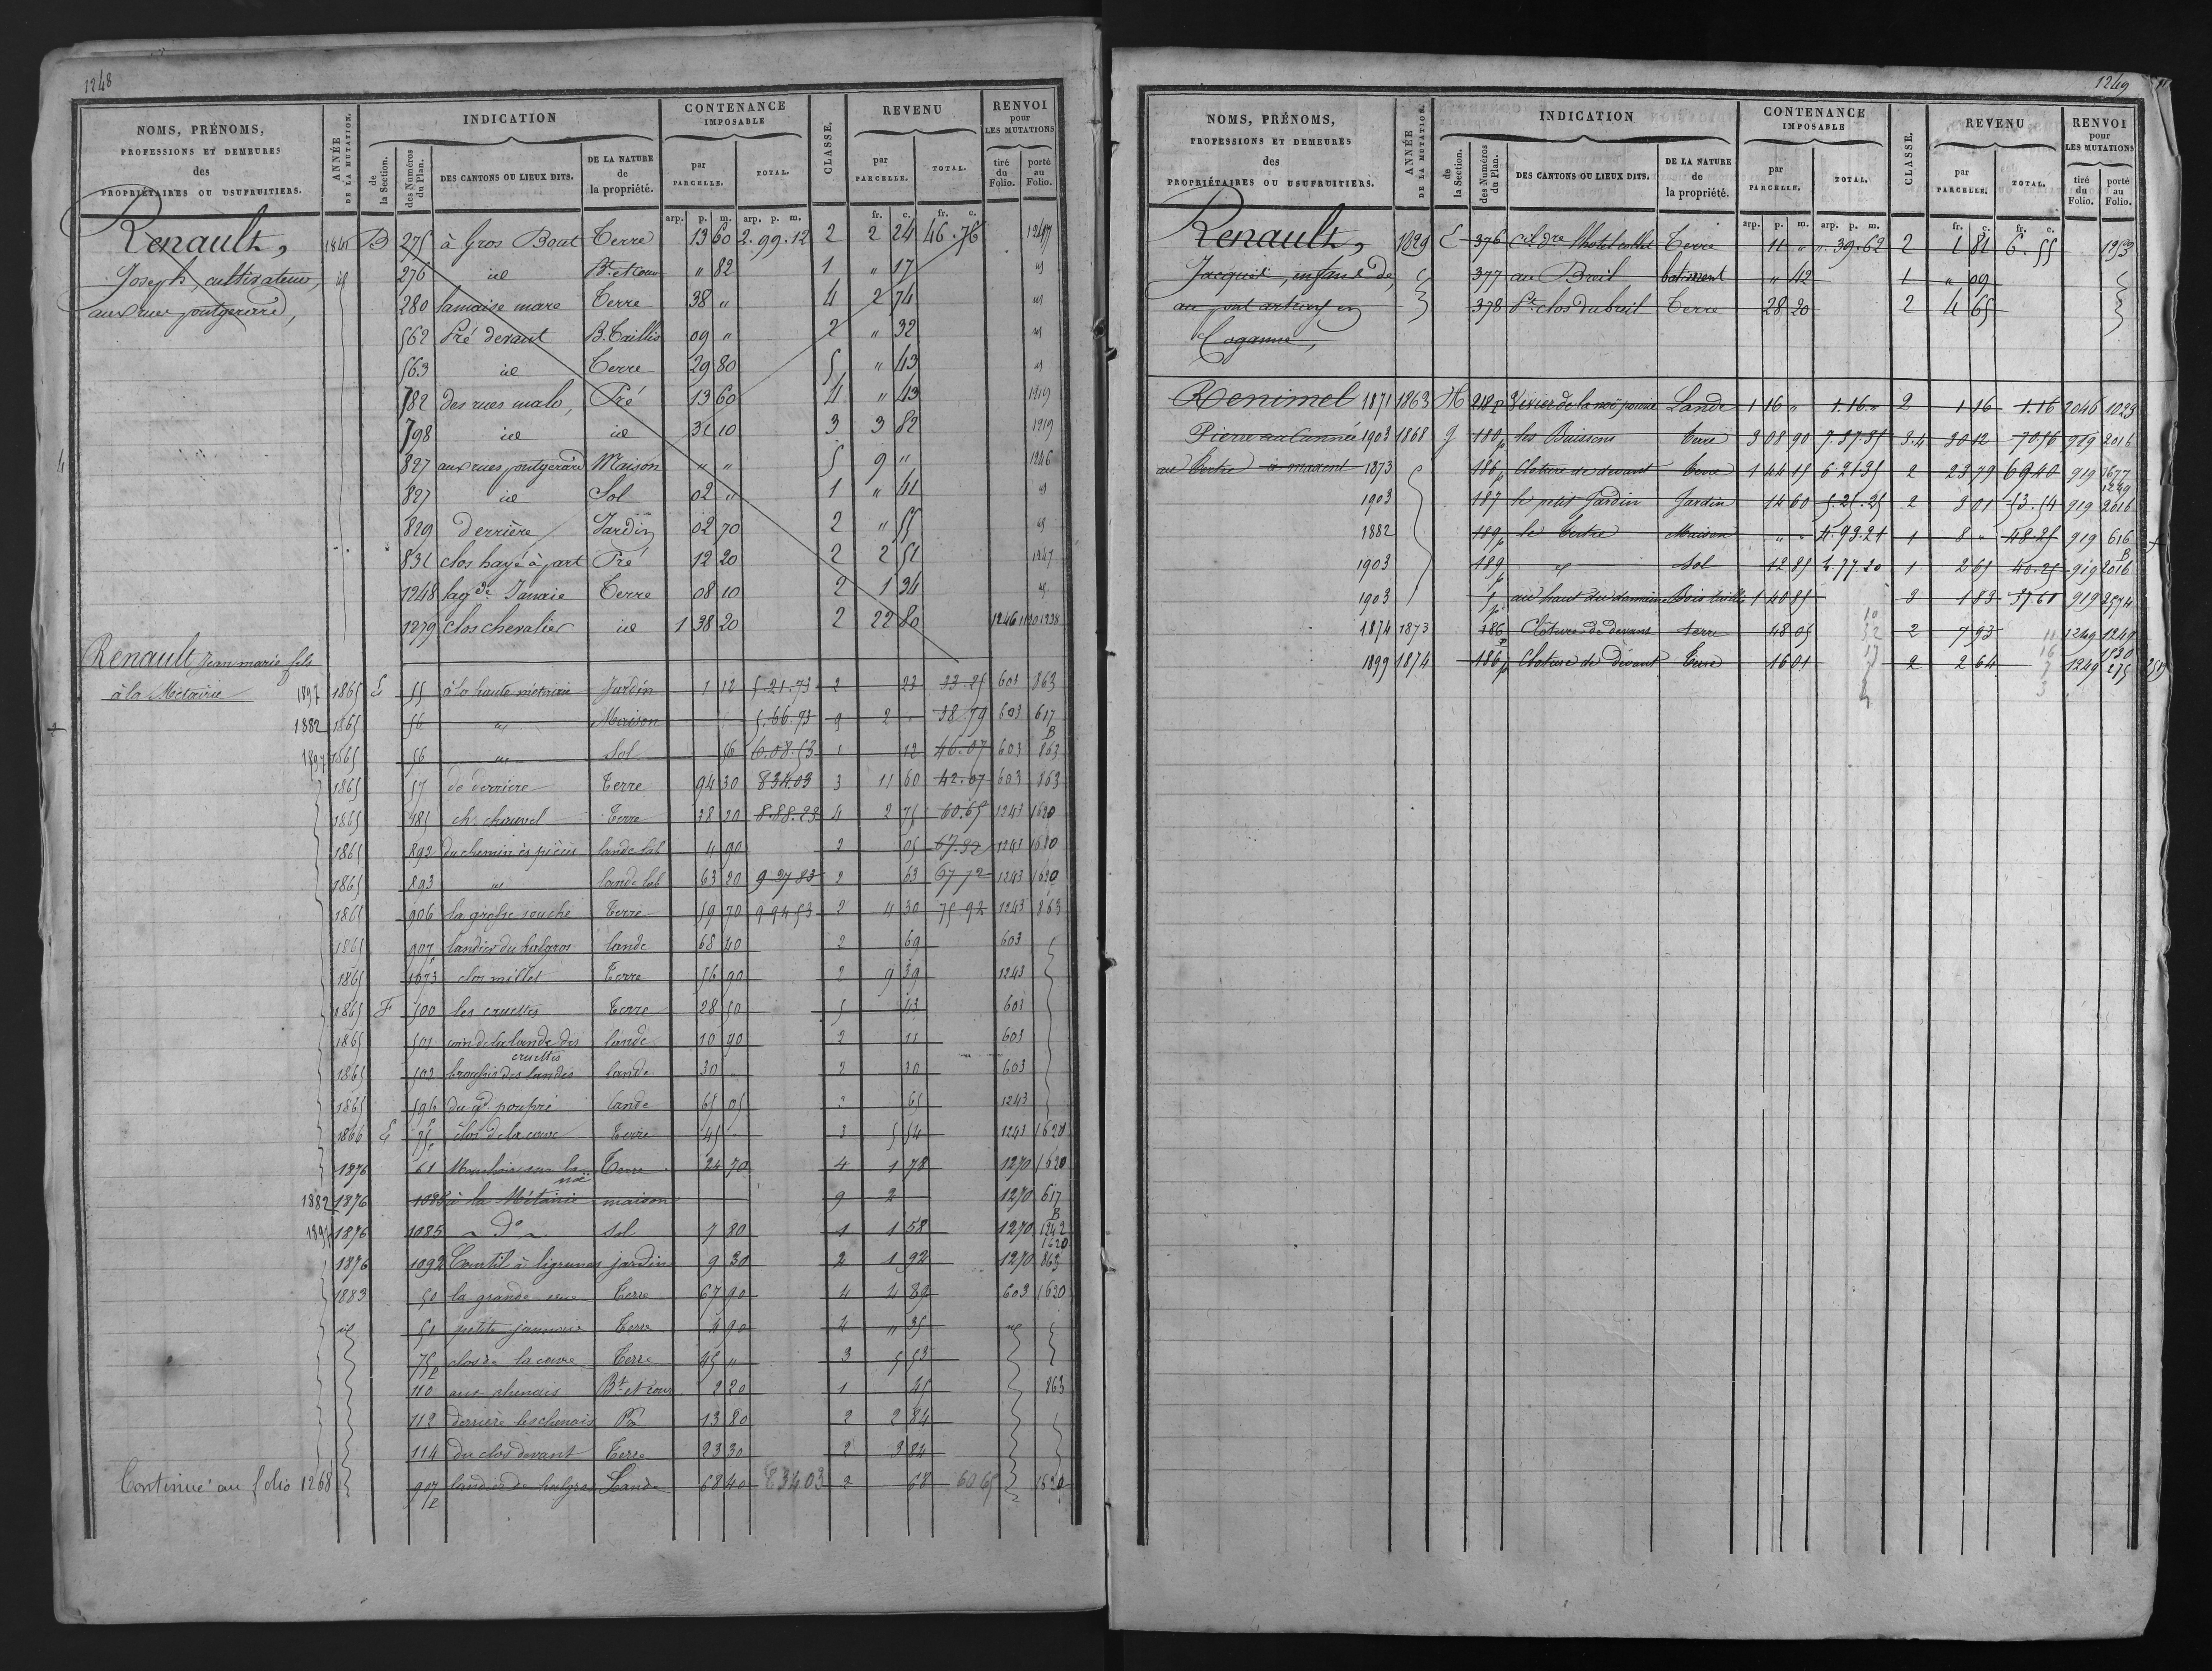 1248
NOMS, PRÉNOMS, PROFESSIONS ET DEMEURES des PROPRIÉTAIRES OU USUFRUITIERS.
ANNÉE DE LA MUTATION.
INDICATION
de la Section.
des Numéros du Plan.
DES CANTONS OU LIEUX DITS.
DE LA NATURE de la propriété.
CONTENANCE IMPOSABLE
par PARCELLE.
TOTAL.
CLASSE.
REVENU
par PARCELLE.
TOTAL.
RENVOI pour LES MUTATIONS
tiré du Folio.
porté au Folio.
arp. p. m. arp. p. m. fr. c. fr. c.
Renault, B 275 à Gros Bout Terre 13 60 2.99.12 2 2 24 46.76 1247
Joseph, cultivateur, id 276 id Bt et cour " 82 1 " 17 id
aux rues poutgerard, 280 lamaise mare Terre 38 " 4 2 74 id
562 Pré devant B. Taillis 09 " 2 " 32 id
563 id Terre 29 80 5 " 43 id
782 des rues malo, Pré 13 60 4 " 43 1219
798 id id 31 10 3 3 82 1219
827 aux rues poutgerard Maison " " 5 9 " 1246
827 id Sol 02 " 1 " 41 id
829 derrière Jardin 02 70 2 " 55 id
831 clos hayé à part Pré 12 20 2 2 51 1247
1248 la gde Janaie Terre 08 10 2 1 34 id
1279 clos chevalier id 1 38 20 2 22 80 1246
Renault Jean marie fils
à la Métairie 1897 1865 E 55 à la haute métairie Jardin 1 12 5.21.73 2 23 33.25 603 863
1882 1865 56 id Maison 5.66.73 9 2 " 38.79 603 617 B
1897 1865 56 id Sol 56 6.08.53 1 12 46.07 603 863
1865 57 de derriere Terre 94 30 834.03 3 11 60 42.07 603 863
1865 485 ch. chauvel Terre 38 20 8.88.23 4 2 75 60.65 1243 1620
1865 892 du chemin ès pièces lande lab 4 90 2 05 1243 1620
1865 893 id lande lab 63 20 9 27 83 2 63 67 72 1243 1620
1865 906 la grosse souche Terre 59 70 9 94 53 2 4 30 75 92 1243 863
1865 907 landier du halgros lande 68 40 2 69 603
1865 1073 clos millet Terre 56 90 2 9 39 1243
1865 F 500 les cruettes Terre 28 50 5 43 603
1865 501 coin de la lande des cruettes lande 10 90 2 11 603
1865 503 des landes lande 30 " 2 30 603
1865 596 du gd poupré lande 65 05 2 65 1243
1866 E 75p clos de la couve Terre 45 " 3 5 54 1243 1620
1876 61 sur la noë Terre 24 70 4 1 78 1270 1620
1882 1876 1085 à la Métairie maison 9 2 1270 617 B
1876 1085 do sol 7 80 1 1 58 1270 1620
1876 1092 Courtil à ligrunes jardin 9 30 2 1 92 1270 863
1883 50 la grande Terre 67 90 4 4 89 603 1620
id 51 petite jannaie Terre 4 90 4 " 35 id
75p clos de la couve Terre 45 " 3 5 53
110 aux chenais Bt et cour 2 20 1 45 863
112 derrière les chenais Pré 13 80 2 2 84
114 du clos devant Terre 23 30 2 3 84
Continué au folio 1268 907p landier de halgros Lande 68 40 834 03 2 68 60 65 1620
1249
NOMS, PRÉNOMS, PROFESSIONS ET DEMEURES des PROPRIÉTAIRES OU USUFRUITIERS.
ANNÉE DE LA MUTATION.
INDICATION
de la Section.
des Numéros du Plan.
DES CANTONS OU LIEUX DITS.
DE LA NATURE de la propriété.
CONTENANCE IMPOSABLE
par PARCELLE.
TOTAL.
CLASSE.
REVENU
par PARCELLE.
TOTAL.
RENVOI pour LES MUTATIONS
tiré du Folio.
porté au Folio.
arp. p. m. arp. p. m. fr. c. fr. c.
Renault, E 376 Terre 11 " ".39.62 2 1 81 6.55
Jacques, enfant de, 377 au Breil batiment " 42 1 " 09
au pont 378 Pt clos du beuil Terre 28 20 2 4 65
Renimel 1871 1863 H 218p Vivier de la noë Lande 1 16 " 1.16." 2 1 16 1.16 2046 1023
Pierre 1903 1868 G 180p les Buissons Terre 3 08 90 3.4 30 12 70.56 919 2016
au Tertre à maxent 1873 186p Cloture de devant Terre 1 44 15 6 21 35 2 23 79 69 40 919 1677 1249
1903 187 le petit Jardin Jardin 14 60 5.21.25 2 3 01 919 2016
1882 189p le Tertre Maison " " 4.93.21 1 8 " 48.25 919 616 B
1903 189p id Sol 12 85 4.77.20 1 2 65 40.25 919 2016
1903 au haut du domaine Bois taillis 1 40 85 3 1 83 37.61 919 2574
1874 1873 186p Cloture de devant terre 48 05 2 7 93 1249 1249
1899 1874 186p Cloture de devant Terre 16 01 2 2 64 1249 275